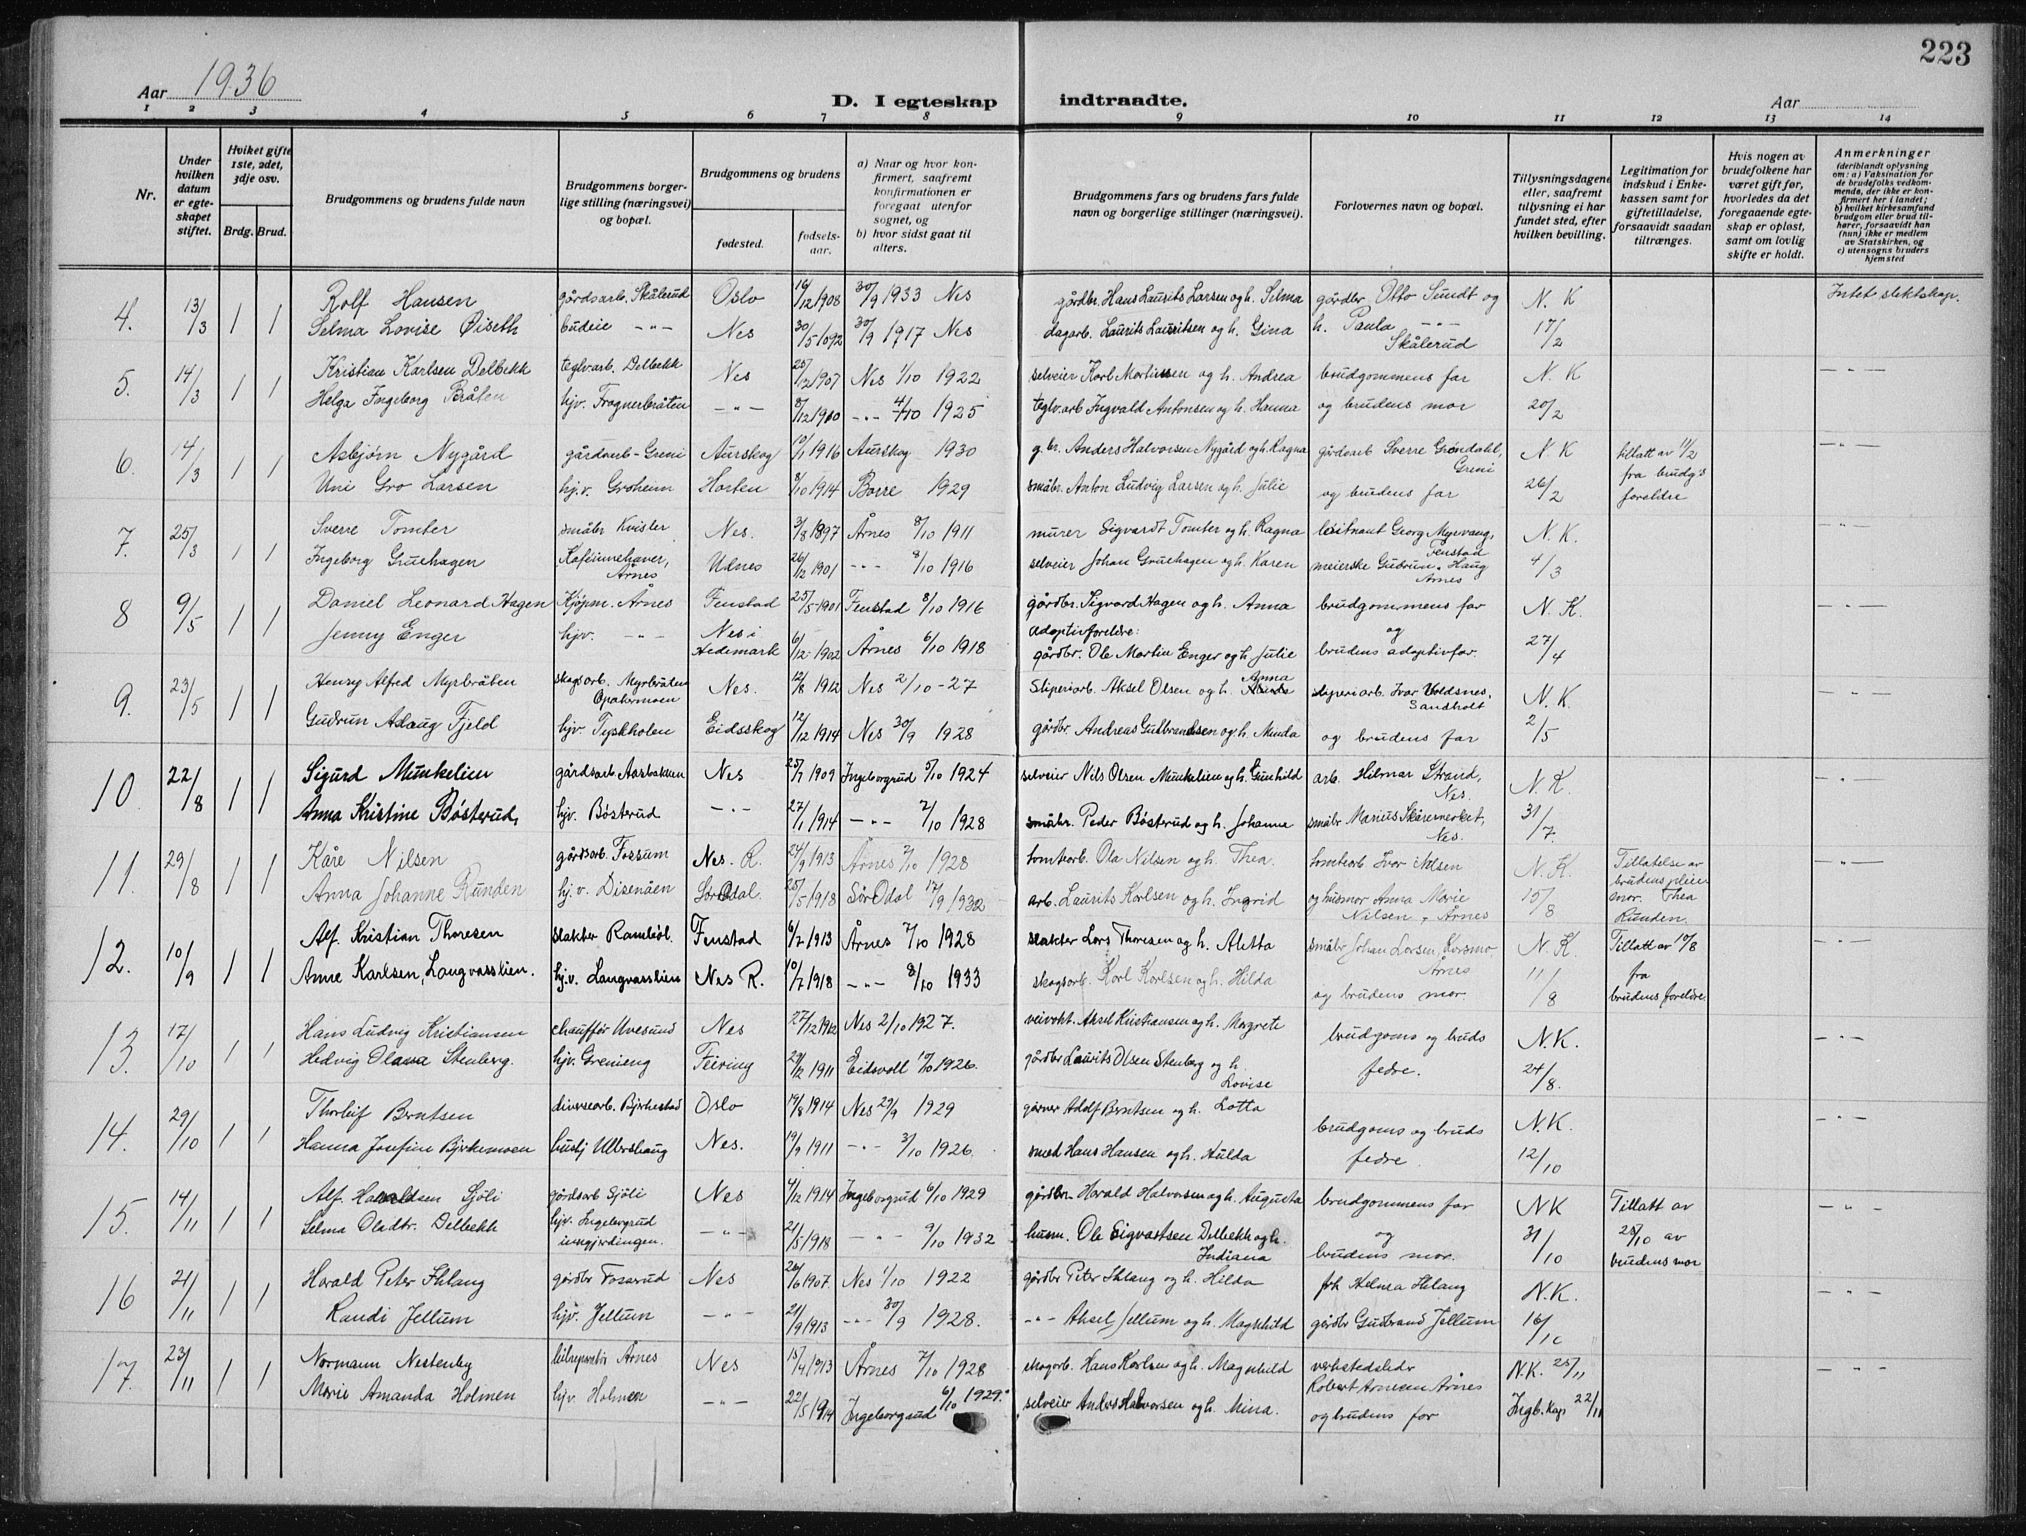 223
Aar 1936
D. I egteskap indtraadte.
Aar
1 2 3 4 5 6 7 8 9 10 11 12 13 14
Nr.
Under hvilken datum er egteskapet stiftet.
Hvilket gifte 1ste, 2det, 3dje osv.
Brdg. Brud.
Brudgommens og brudens fulde navn
Brudgommens borgerlige stilling (næringsvei) og bopæl.
Brudgommens og brudens
fødested.
fødselsaar.
a) Naar og hvor konfirmert, saafremt konfirmationen er foregaat utenfor sognet, og
b) hvor sidst gaat til alters.
Brudgommens fars og brudens fars fulde navn og borgerlige stillinger (næringsvei).
Forlovernes navn og bopæl.
Tillysningsdagene eller, saafremt tillysning ei har fundet sted, efter hvilken bevilling.
Legitimation for indskud i Enkekassen samt for giftetilladelse, forsaavidt saadan tiltrænges.
Hvis nogen av brudefolkene har været gift før, hvorledes da det foregaaende egteskap er opløst, samt om lovlig skifte er holdt.
Anmerkninger
(deriblandt oplysning om: a) Vaksination for de brudefolks vedkommende, der ikke er konfirmert her i landet; b) hvilket kirkesamfund brudgom eller brud tilhører, forsaavidt han (hun) ikke er medlem av Statskirken, og c) utensogns bruders hjemsted
4. 13/3 1 1 Rolf Hansen gårdsarb. Skålerud Oslo 16/12 1908 30/9 1933 Nes gårdbr. Hans Laurits Larsen og h. Selma gårdbr Otto Sundt og N. K Intet slektskap.
Selma Lovise Øiseth budeie -"- Nes 30/5 30/9 1917 Nes dagarb. Laurits Lauritsen og h. Gina h. Paula -"- Skålerud 17/2
5. 14/3 1 1 Kristian Karlsen Delbekk teglvarb. Delbekk Nes 25/12 1907 Nes 1/10 1922 selveier Karl Martinsen og h. Andrea brudgommens far N. K -"-
Helga Ingeborg Bråten hjv. Frognerbråten -"- 8/12 1910 -"- 4/10 1925 teglv.arb Ingvald Antonsen og h. Hanna og brudens mor 20/2
6. 14/3 1 1 Asbjørn Nygård gårdsarb - Greni Aurskog 10/1 1916 Aurskog 1930 g.br. Anders Halvorsen Nygård og h. Ragna gårdsarb Sverre Grøndahl, Greni N K tillatt av 11/2 fra brudg's foreldre -"-
Uni Gro Larsen hj.v. Groheim Horten 8/10 1914 Borre 1929 småbr. Anton Ludvig Larsen og h. Julie og brudens far 26/2
7. 25/3 1 1 Sverre Tomter småbr Kvisler Nes. 3/8 1897 Årnes 8/10 1911 murer Sigvardt Tomter og h. Ragna løitnant Georg Myrvang, Fenstad N. K. -"-
Ingeborg Gruehagen Kaféinnehaver, Årnes Udnes 26/12 1901 -"- 8/10 1916 selveier Johan Gruehagen og h. Karen meierske Gudrun Haug Årnes 4/3
8 9/5 1 1 Daniel Leonard Hagen Kjøpm. Årnes Fenstad 25/5 1901 Fenstad 8/10 1916 gårdbr. Sigvard Hagen og h. Anna brudgommens far N. K. -"-
Jenny Enger hjv. -"- Nes i Hedemark 6/12 1902 Årnes 6/10 1918 Adoptivforeldre: gårdbr. Ole Martin Enger og h. Julie og brudens adoptivfar. 27/4
9. 23/5 1 1 Henry Alfred Myrbråten skogsarb. Myrbråten Opakermoen Nes. 12/8 1912 Nes 2/10-27 Sliperiarb. Aksel Olsen og h. Anna sliperiarb. Ivar Voldsnes, Sandholt N. K. -"-
Gudrun Aslaug Fjeld hjv Tyskholen Eidsskog 12/12 1914 Nes 30/9 1928 gårdbr. Andreas Gulbrandsen og h. Minda og brudens far 2/5
10 22/8 1 1 Sigurd Munkelien gårdsarb. Aasbakken Nes 25/7 1909 Ingeborgrud 5/10 1924 selveier Nils Olsen Munkelien og h. Gunhild arb. Hilmar Strand, Nes. N. K. -"-
Anna Kristine Bøsterud, hjv. Bøsterud -"- 27/1 1914 -"- 7/10 1928 småbr. Peder Bøsterud og h. Johanna småbr Marius Skårernerket, Nes. 31/7
11. 29/8 1 1 Kåre Nilsen gårdsarb. Fossum Nes. R. 24/9 1913 Årnes 7/10 1928 tomtearb. Ola Nilsen og h. Thea. tomtearb Ivar Nilsen N. K. Tillatelse av brudens pleiemor. Thea Runden. -"-
Anna Johanne Runden hj.v. Disenåen Sør Odal. 25/5 1918 Sør Odal 17/9 1932 arb. Laurits Karlsen og h. Ingrid og husmor Anna Marie Nilsen, Årnes 15/8
12. 10/9 1 1 Alf. Kristian Thoresen slakter Fenstad 6/7 1913 Årnes 7/10 1928 slakter Lars Thoresen og h. Aletta småbr Johan Larsen, Korsmo, Årnes N. K. Tillatt av 10/8 fra brudens foreldre -"-
Anne Karlsen, Langvasslien. hj.v. Langvasslien Nes R. 10/7 1918 -"- 8/10 1933 skogsarb. Karl Karlsen og h. Hilda og brudens mor. 11/8
13. 17/10 1 1 Hans Ludvig Kristiansen chauffør Uvesund Nes 27/12 1912 Nes 2/10 1927. veivokt. Aksel Kristiansen og h. Margrete brudgoms og bruds N.K. -"-
Hedvig Olava Stenberg. hjv. Grenieng Feiring 29/12 1911 Eidsvoll 17/10 1926. gårdbr Laurits Olsen Stenberg og h. Lovise fedre. 24/8.
14. 29/10 1 1 Thorleif Berntsen diversearb. Bjerkestad Oslo 19/8 1914 Nes 29/9 1929 gårver Adolf Berntsen og h. Lotta brudgoms og bruds N.K. -"-
Hanna Josefine Bjerkemoen husbj Ullershaug Nes. 19/9 1911 -"- 3/10 1926 smed Hans Hansen og h. Hulda fedre. 12/10
15. 14/11 1 1 Alf. Haraldsen Sjøli gårdsarb Sjøli Nes 4/12 1914 Ingeborgrud 6/10 1929 gårdbr. Harald Halvorsen og h. Augusta brudgommens far NK Tillatt av 28/10 av brudens mor -"-
Selma Olsdtr. Delbekk hjv. Ingeborgrud inngjerdingen. -"- 21/5 1918 -"- 9/10 1932 husm. Ole Sigvartsen Delbekk og h. Indiana og brudens mor. 31/10
16 21/11 1 1 Harald Peter Ihlang gårdbr Fosserud Nes 26/6 1907. Nes 1/10 1922 gårdbr Peter Ihlang og h. Hilda frk Helma Ihlang N.K. -"-
Randi Jellum hjv. Jellum -"- 21/9 1913 -"- 30/9 1928. -"- Aksel Jellum og h. Magnhild gårdbr Gudbrand Jellum 16/10
17. 23/11 1 1 Normann Nestenby bilreparatør Årnes Nes 15/4 1913 Årnes 7/10 1928 skogarb. Hans Karlsen og h. Magnhild verkstedsleder Robert Arnesen Årnes N.K. 25/11 -"-
Marie Amanda Holmen hjv. Holmen -"- 22/5 1914 Ingeborgrud 6/10 1929. selveier Anders Halvorsen og h. Mina. og brudens far Ingb. Kap 22/11